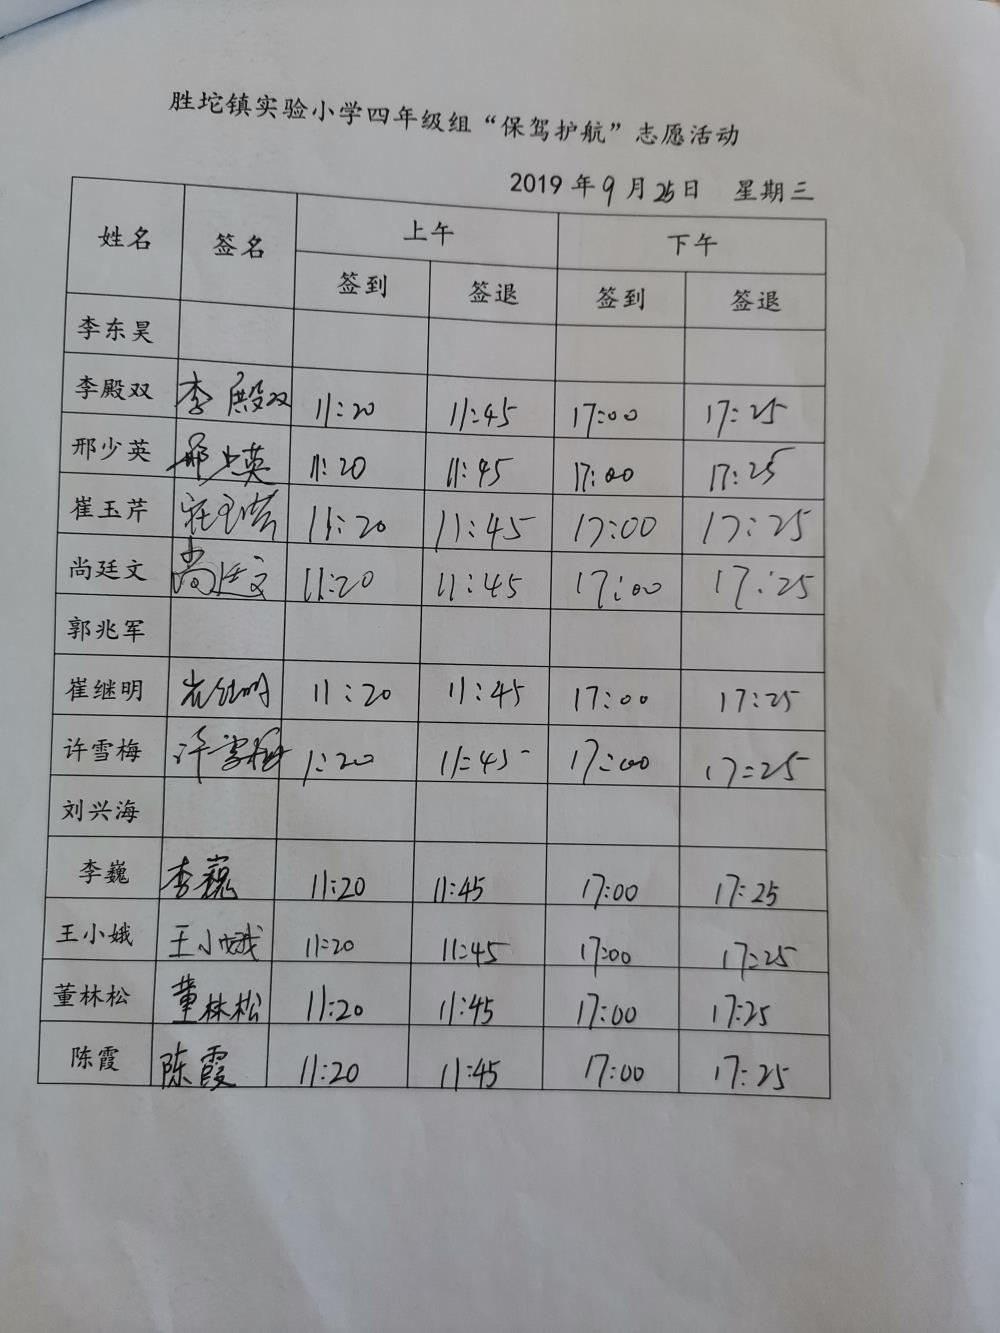 胜坨镇实验小学四年级组“保驾护航”志愿活动
2019 年 9 月 25 日 星期三
姓名 签名 上午 下午
签到 签退 签到 签退
李东昊
李殿双 李殿双 11:20 11:45 17:00 17:25
邢少英 邢少英 11:20 11:45 17:00 17:25
崔玉芹 崔玉芹 11:20 11:45 17:00 17:25
尚廷文 尚廷文 11:20 11:45 17:00 17:25
郭兆军
崔继明 崔继明 11:20 11:45 17:00 17:25
许雪梅 许雪梅 1:20 11:45 17:00 17:25
刘兴海
李巍 李巍 11:20 11:45 17:00 17:25
王小娥 王小娥 11:20 11:45 17:00 17:25
董林松 董林松 11:20 11:45 17:00 17:25
陈霞 陈霞 11:20 11:45 17:00 17:25